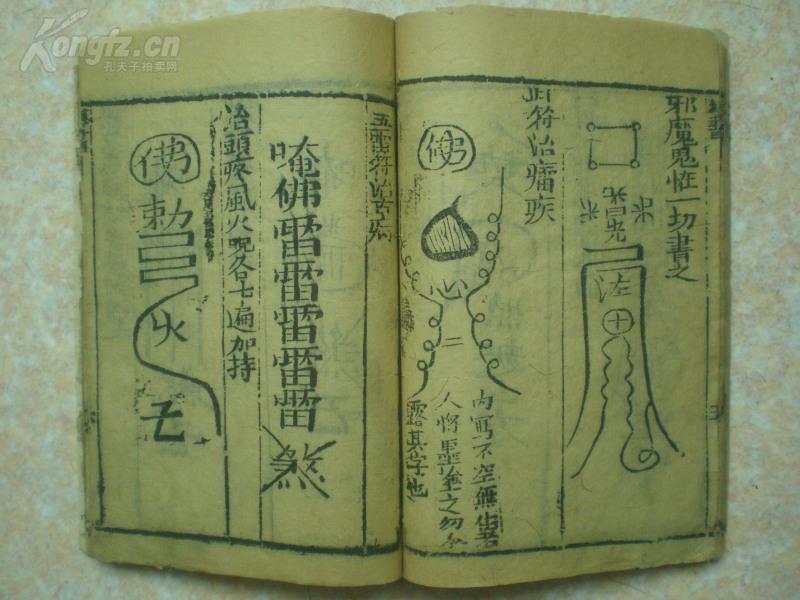 Kongfz.cn
孔夫子拍卖网
邪魔鬼怪一切書之
佐
十
此符治瘟疾
佛
心
二
内寫不空無
人將墨塗之勿令
露其字也
五雷符治百病
唵佛雷雷雷雷雷煞
治頭疼風火呪各七遍加持
佛
勅
火